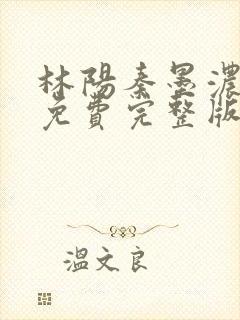 林陽秦墨濃
免費完整版
溫文良